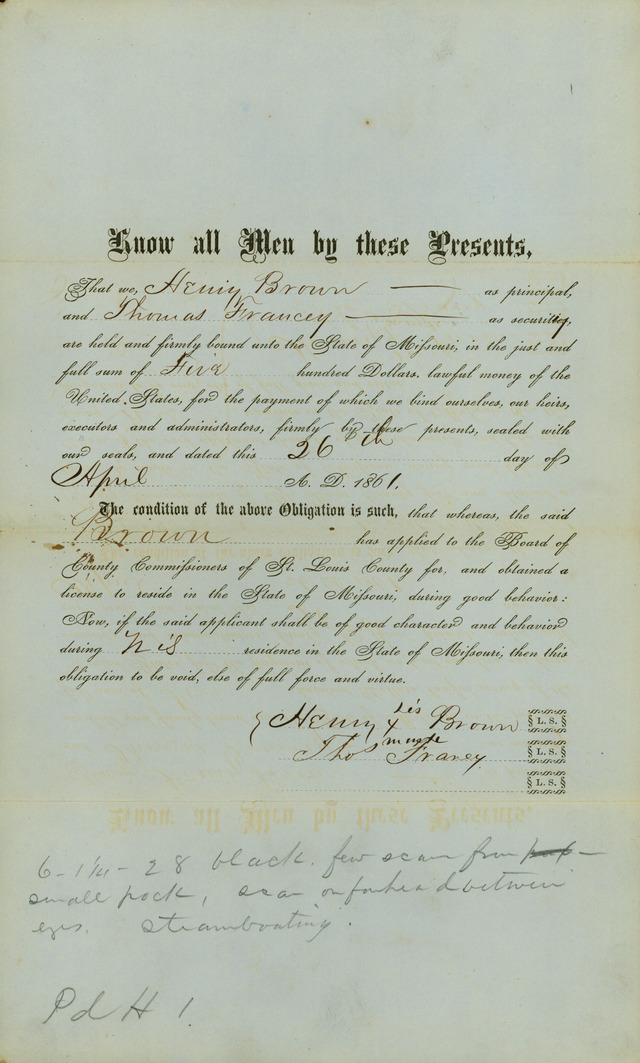 Know all Men by these Presents,
That we, Henry Brown — as principal,
and Thomas Francey — as security,
are held and firmly bound unto the State of Missouri, in the just and
full sum of Five hundred Dollars, lawful money of the
United States, for the payment of which we bind ourselves, our heirs,
executors and administrators, firmly by these presents, sealed with
our seals, and dated this 26th day of
April A. D. 1861.
The condition of the above Obligation is such, that whereas, the said
Brown has applied to the Board of
County Commissioners of St. Louis County for, and obtained a
license to reside in the State of Missouri, during good behavior:
Now, if the said applicant shall be of good character and behavior
during his residence in the State of Missouri, then this
obligation to be void, else of full force and virtue.
his
Henry X Brown § L. S. §
mark
Thos Franey § L. S. §
§ L. S. §
6-1¼-28 black. few scars from
small pock, scar on forhead between
eyes. Steamboating.
Pd H 1